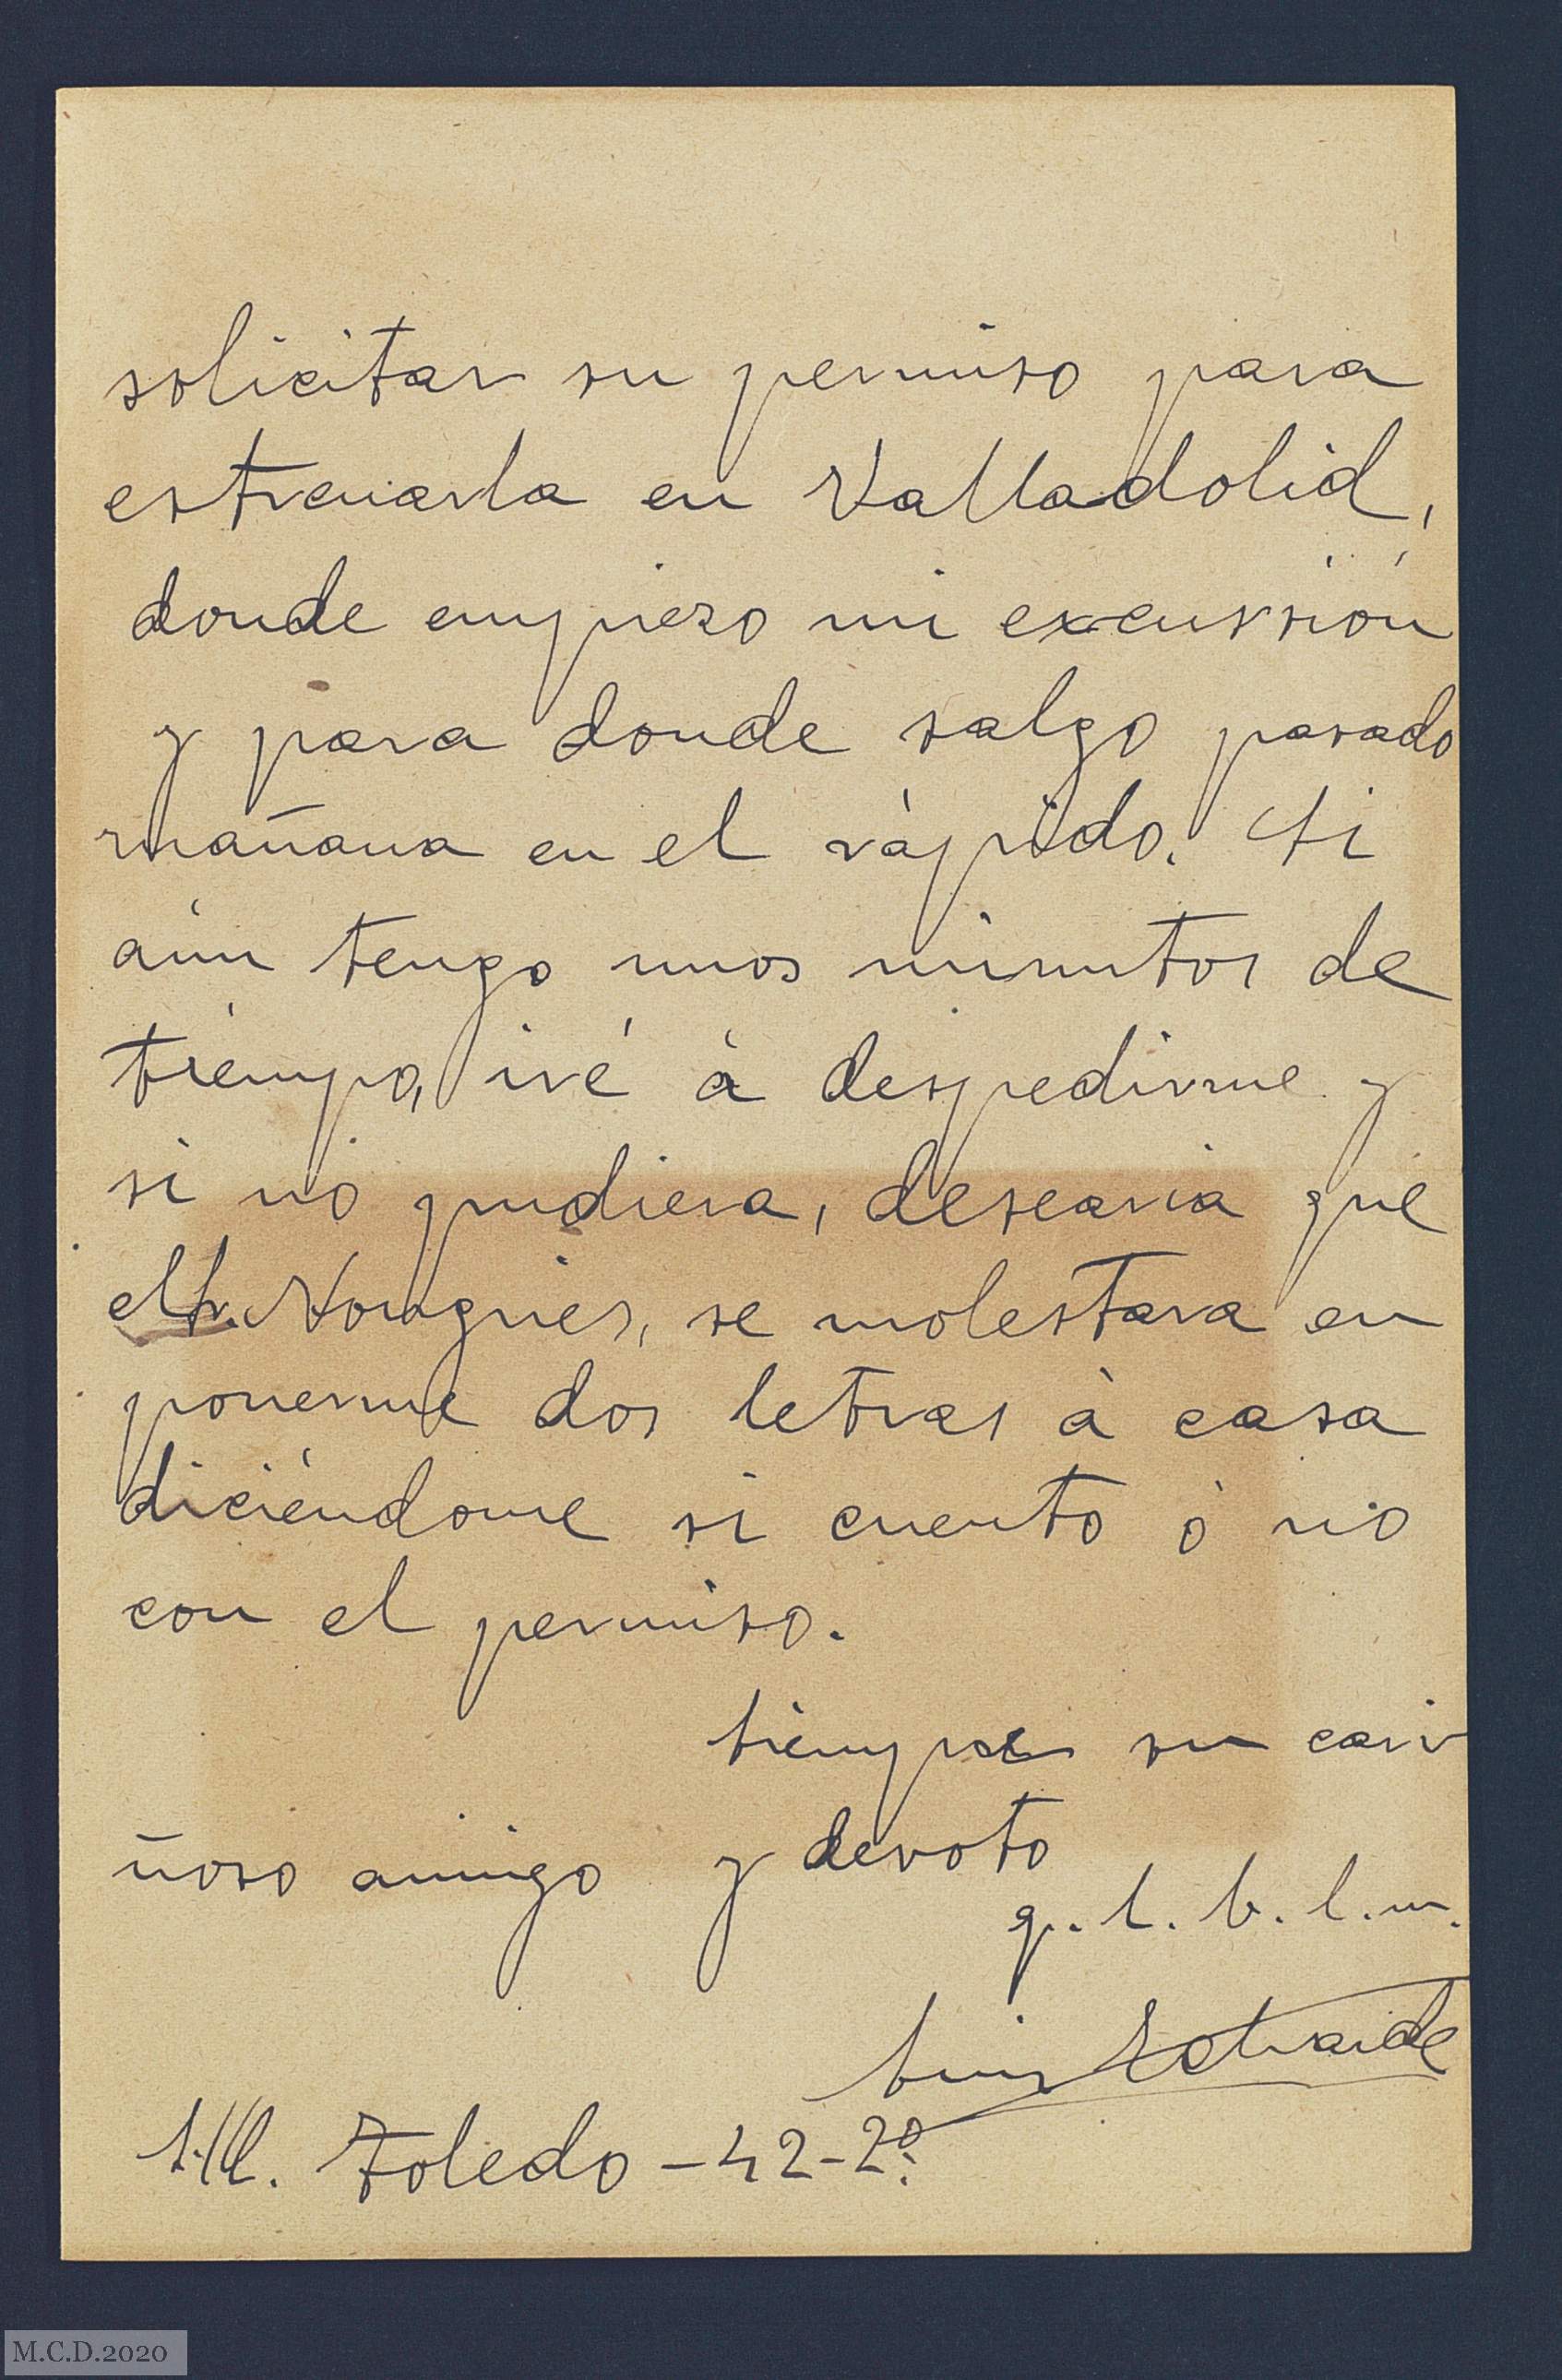 solicitar su permiso para
estrenarla en Valladolid,
donde empiezo mi excursión
y para donde salgo pasado
mañana en el rápido. Si
aún tengo unos minutos de
tiempo, iré á despedirme y
si no pudiera, desearía que
Mr. Nougués, se molestara en
ponerme dos letras á casa
diciéndome si cuento ó no
con el permiso.
Siempre su cari
ñoso amigo y devoto
q. l. b. l. m.
Luis
Toledo - 42 - 2º
M.C.D.2020